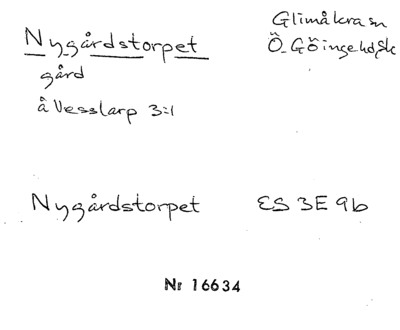 Nygårdstorpet
Glimåkra sn
Ö. Göinge hd, Sk
gård
å Vesslarp 3:1
Nygårdstorpet
ES 3E 9b
Nr 16634